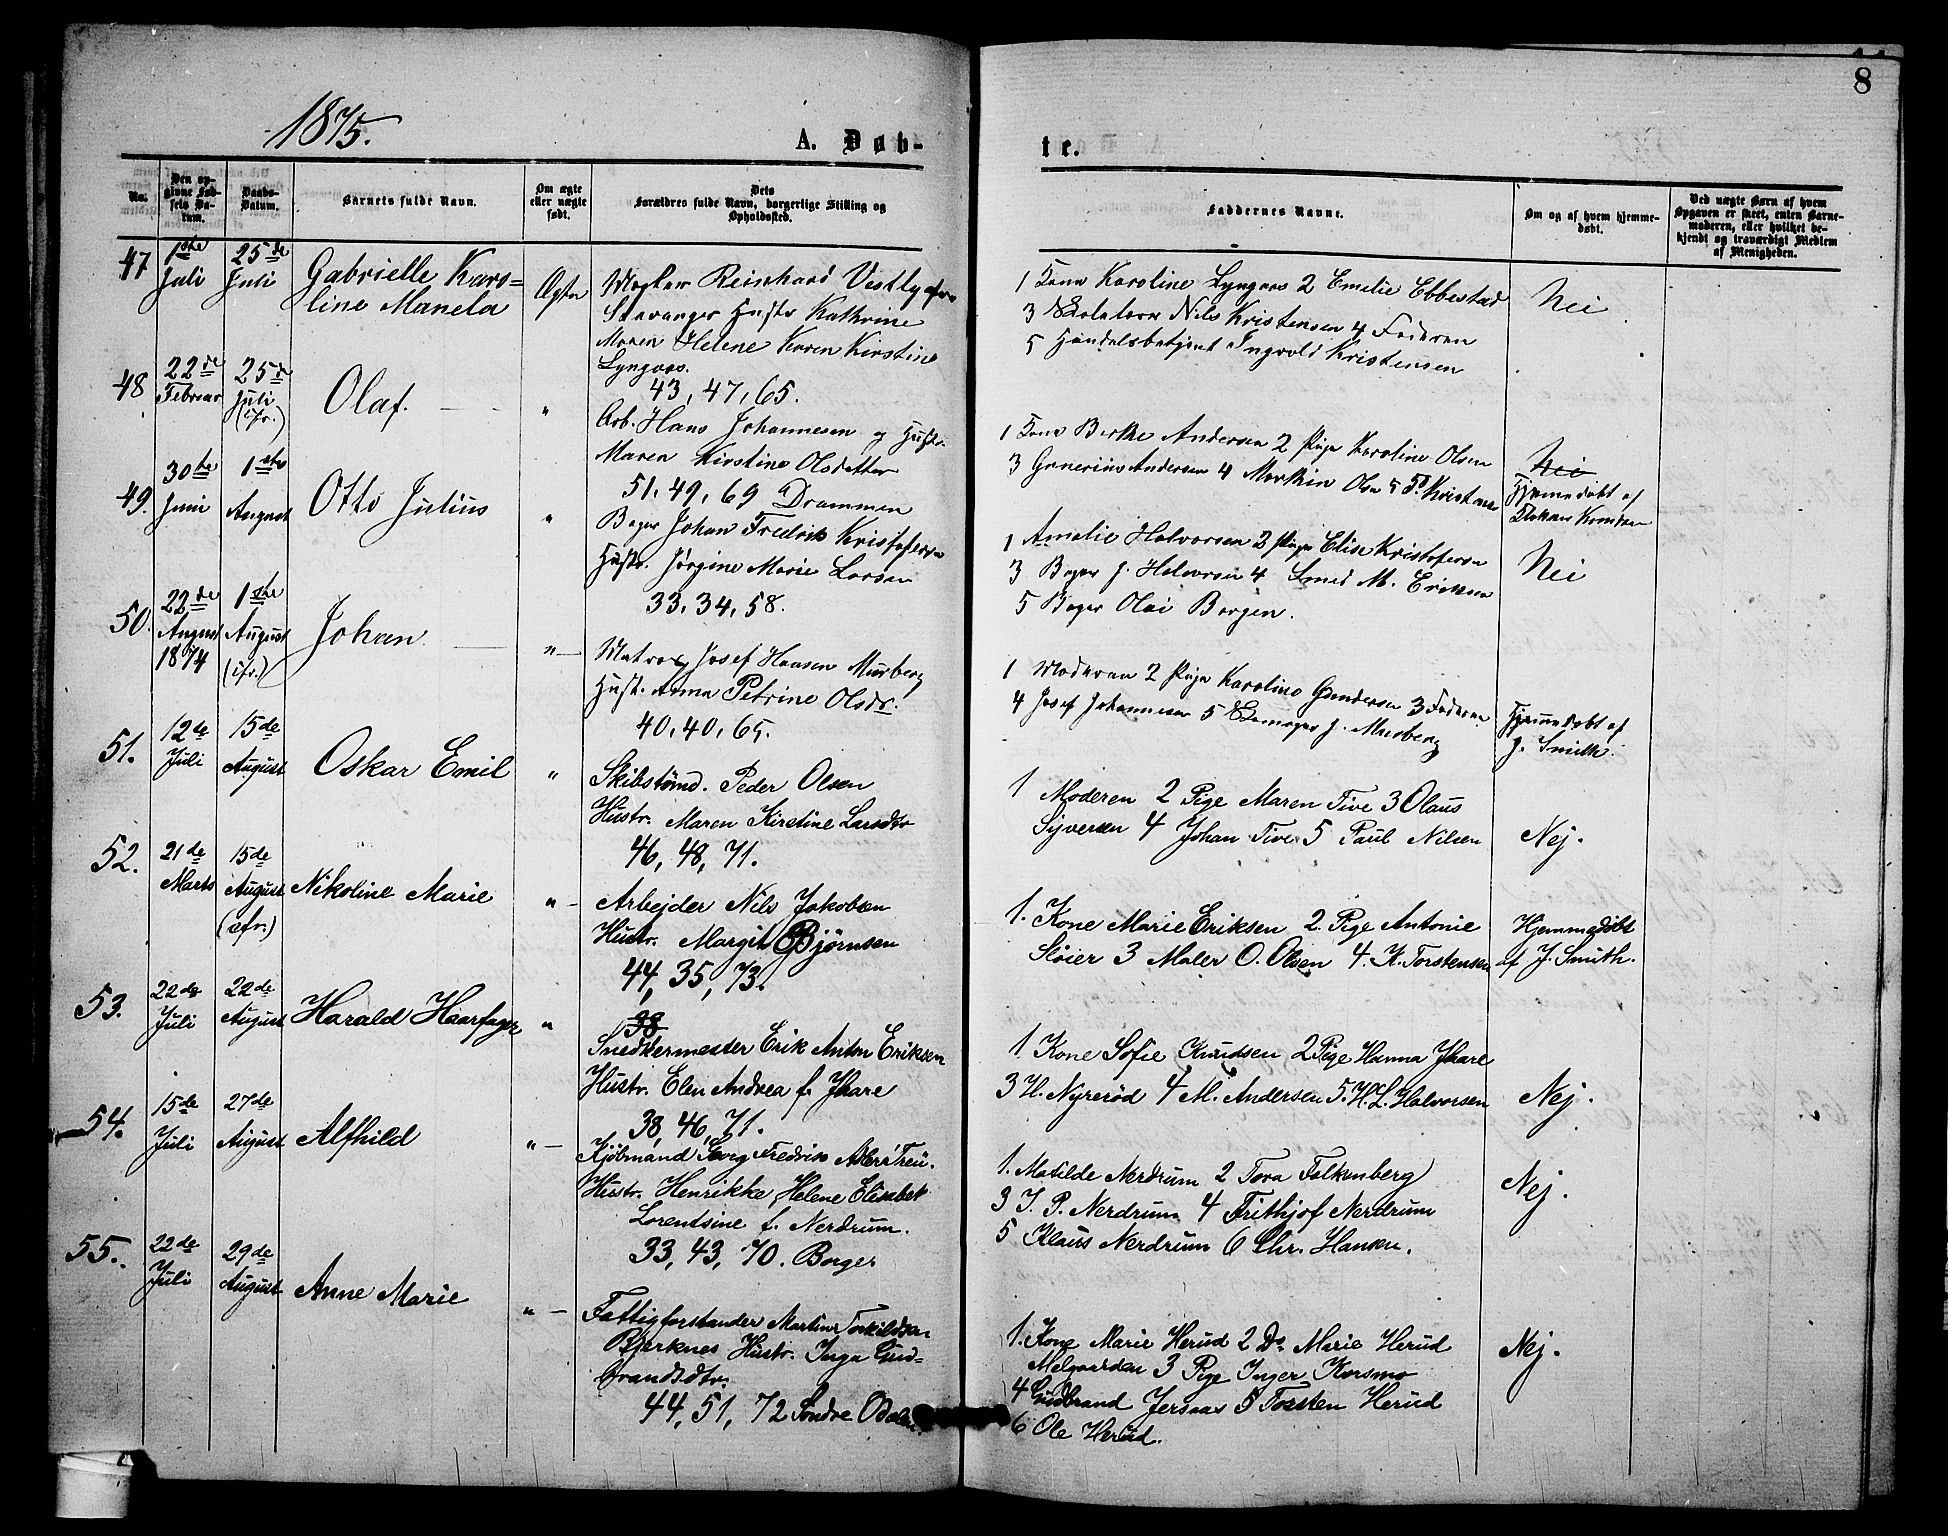 8
1875.
A. Døb-
te.
No.
Den op-
givne Fød-
sels Da-
tum.
Daabs-
Datum.
Barnets fulde Navn.
Om ægte
eller uægte
født.
Dets
Forældres fulde Navn, borgerlige Stilling og
Opholdssted.
Faddernes Navne.
Om og af hvem hjemme-
døbt.
Ved uægte Børn af hvem
Opgaven er skeet, enten Barne-
moderen, eller hvilket be-
kjendt og troværdigt Medlem
af Menigheden.
47
1ste
Juli
25de
Juli
Gabrielle Karo-
line Manela
Ægte
Reinhard Vestly
Stavanger Hustr Kathrine
Maren Helene Karen Kirstine
Lyngaas.
43, 47, 65.
1 Kone Karoline Lyngaas 2 Emilie Ebbestad
3 Nils Kristensen 4 Faderen
5 Handelsbetjent Ingvald Kristensen
Nei
48
22de
Februar
25de
Juli
(ifr.)
Olaf.
"
Arb. Hans Johannesen og Hustr.
Maren Kirstine Olsdatter
51, 49, 69 Drammen
1 Kone Berthe Andersen 2 Pige Karoline Olsen
3 Andersen 4 Martin Olsen 5 P. Kristensen
Nei
Hjemmedøbt af
49.
30te
Juni
1ste
August
Otto Julius
"
Bager Johan Fredrik Kristofersen
Hustr. Jørgine Marie Larsen
33, 34, 58.
1 Amalie Halvorsen 2 Pige Elise Kristofersen
3 Bager J. Halvorsen 4 Smed M. Eriksen
5 Bager Olai Borgen.
Nei
50.
22de
August
1874
1ste
August
(ifr.)
Johan
"
Matros Josef Hansen Murberg
Hust. Anna Petrine Olsdr.
40, 40, 65.
1 Moderen 2 Pige Karoline Gundersen 3 Faderen
4 Josef Johannesen 5 J. Murberg
Hjemmedøbt af
J. Smith.
51.
12de
Juli
15de
August
Oskar Emil
"
Skibstømd. Peder Olsen
Hustr. Maren Kirstine Larsdtr
46, 48, 71.
1 Moderen 2 Pige Maren Tive 3 Olaus
Syversen 4 Johan Tive 5 Paul Nilsen
Nej.
52.
21de
Marts
15de
August
(efr.)
Nikoline Marie
"
Arbejder Nils Jakobsen
Hustr. Margit Bjørnsen
44, 35, 73.
1. Kone Marie Eriksen 2. Pige Antonie
Sløier 3 Maler O. Olsen 4. K. Torstensen
Hjemmedøbt
af J. Smith.
53.
22de
Juli
22de
August
Harald Haarfager
"
38
Snedkermester Erik Anton Eriksen
Hustr. Elen Andrea f. Jhare
38, 46, 71.
1. Kone Sofie Knudsen 2 Pige Hanna Jhare
3 H. Nyrerød 4 M. Andersen 5. H. L. Halvorsen
Nej.
54.
15de
Juli
27de
August
Alfhild
"
Kjøbmand Georg Fredrik Adler Treu.
Hustr. Henrikke Helene Elisabet
Lorentsine f. Nerdrum.
33, 43, 70. Borger
1. Matilde Nerdrum 2 Tova Falkenberg
3 J. P. Nerdrum 4 Frithjof Nerdrum
5 Klaus Nerdrum 6 Chr. Hansen.
Nej.
55.
22de
Juli
29de
August
Anne Marie
"
Fattigforstander Martin Torkildsen
Bjerknes Hustr. Inga Gud-
brandsdtr.
44, 51, 72 Søndre Odalen
1. Kone Marie Herud 2 Do Marie Herud
Melgaarden 3 Pige Inger Korsmo
4 Gudbrand Jersaas 5 Torsten Herud
6 Ole Herud.
Nej.